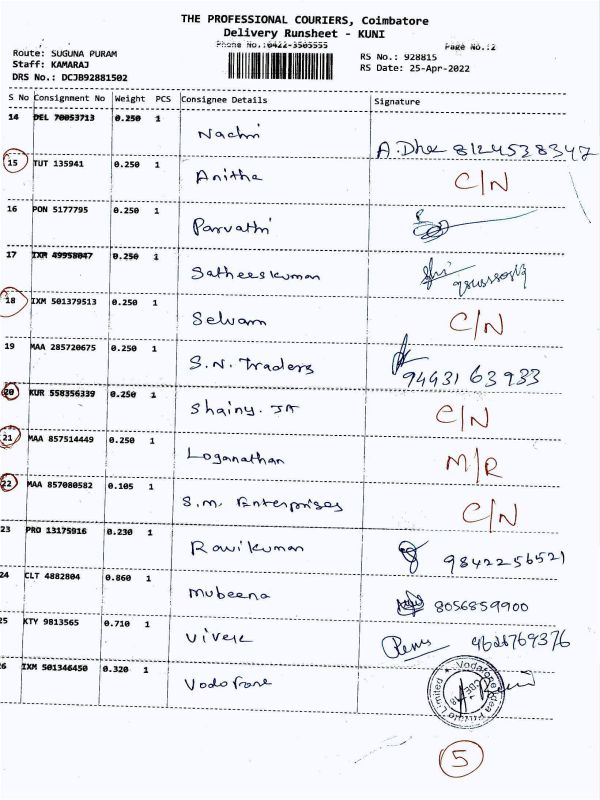 THE PROFESSIONAL COURIERS, Coimbatore
Delivery Runsheet - KUNI
Phone No.:0422-3505555
Page No.:2
Route: SUGUNA PURAM
Staff: KAMARAJ
DRS No.: DCJB92881502
RS No.: 928815
RS Date: 25-Apr-2022
S No Consignment No Weight PCS Consignee Details Signature
14 DEL 70053713 0.250 1 Nachi A.Dhe 8124538347
15 TUT 135941 0.250 1 Anitha C/N
16 PON 5177795 0.250 1 Parvathi
17 IXM 49958047 0.250 1 Satheeskumar
18 IXM 501379513 0.250 1 Selvam C/N
19 MAA 285720675 0.250 1 S.N. Traders 9493163933
20 KUR 558356339 0.250 1 Shainy. JA C/N
21 MAA 857514449 0.250 1 Loganathan M/R
22 MAA 857080582 0.105 1 S.M. Enterprises C/N
23 PRO 13175916 0.230 1 Ravikumar 9842256521
24 CLT 4882804 0.860 1 Mubeena 8056859900
25 KTY 9813565 0.710 1 Vivek
26 IXM 501346450 0.320 1 Vodofone
5